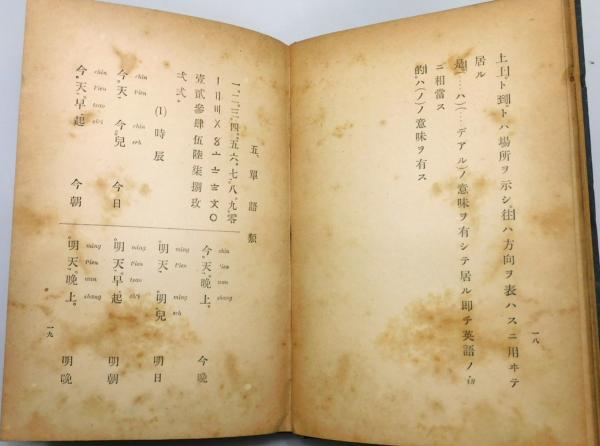 上上ト到トハ場所ヲ示シ往ハ方向ヲ表ハスニ用ヰテ
居ル
是(……ハ)(……デアル)ノ意味ヲ有シテ居ル即チ英語ノis
ニ相當ス
的ハ(ノ)ノ意味ヲ有ス
一八
五、單語類
一、二、三、四、五、六、七、八、九、零
〡〢〣〤〥〦〧〨〩〇
壹貳參肆伍陸柒捌玖
弍弍。
(1) 時辰
chin t'ien chin erh
今天 今兒 今日
chin t'ien tsao ch'i
今天早起 今朝
chin t'ien wan shang
今天晚上。 今晚
ming t'ien ming erh
明天 明兒 明日
ming t'ien tsao ch'i
明天早起 明朝
ming t'ien wan shang
明天晚上。 明晚
一九